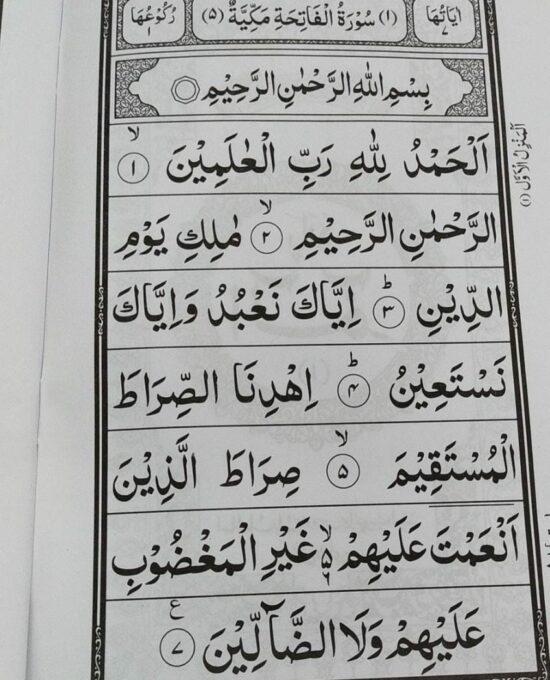 اٰيَاتُهَا ٧ (١) سُوْرَةُ الْفَاتِحَةِ مَكِّيَّةٌ (٥) رُكُوْعُهَا ١
بِسْمِ اللّٰهِ الرَّحْمٰنِ الرَّحِيْمِ
اَلْحَمْدُ لِلّٰهِ رَبِّ الْعٰلَمِيْنَ ۙ﴿١﴾
الرَّحْمٰنِ الرَّحِيْمِ ۙ﴿٢﴾ مٰلِكِ يَوْمِ
الدِّيْنِ ؕ﴿٣﴾ اِيَّاكَ نَعْبُدُ وَاِيَّاكَ
نَسْتَعِيْنُ ؕ﴿٤﴾ اِهْدِنَا الصِّرَاطَ
الْمُسْتَقِيْمَ ۙ﴿٥﴾ صِرَاطَ الَّذِيْنَ
اَنْعَمْتَ عَلَيْهِمْ ۙ۬ۦ غَيْرِ الْمَغْضُوْبِ
عَلَيْهِمْ وَلَا الضَّآلِّيْنَ ﴿٧﴾ ع
اَلْمَنْزِلُ الْاَوَّلُ (١)